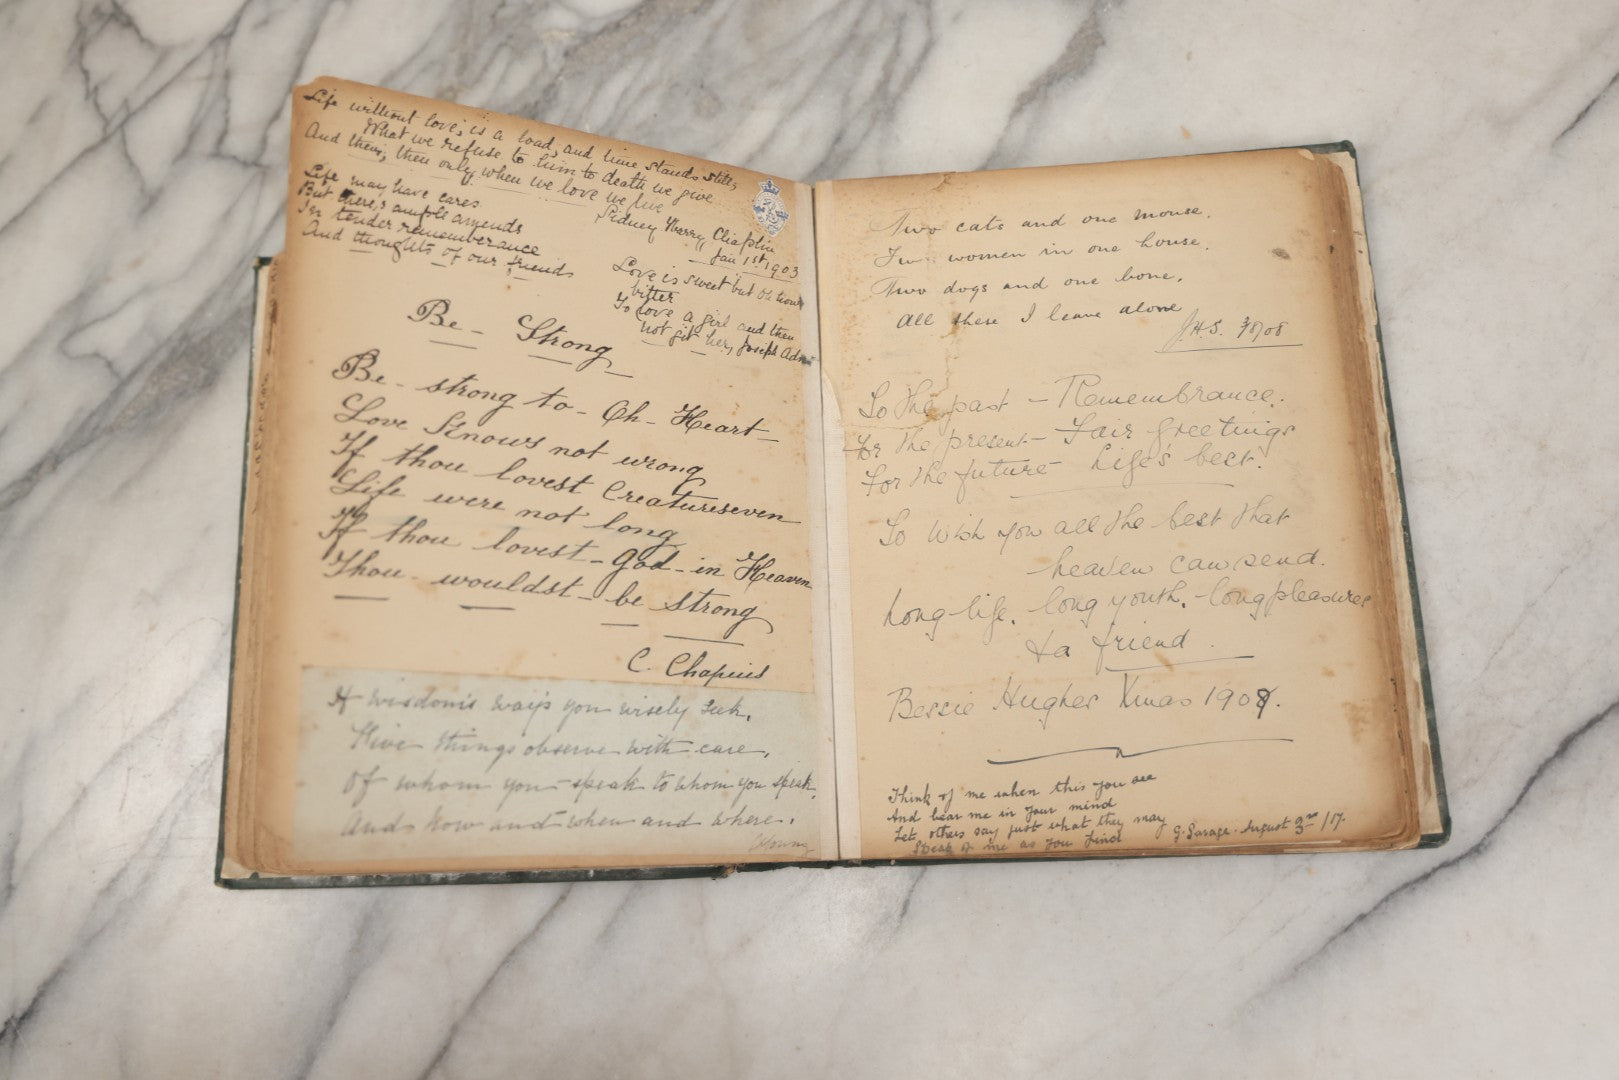 Life without love, is a load, and time stands still,
What we refuse to him to death we give
And then, then only, when we love we live
Sidney Chaplin
Jan 1st 1903
Life may have cares
But there's ample amends
In tender rememberance
And thoughts of our friends
Love is sweet but oh how
bitter
To love a girl and then
not git her, Joseph
Be - Strong
Be - strong to - Oh - Heart -
Love Knows not wrong
If thou lovest Creatures even
Life were not long
If thou lovest - God - in Heaven
Thou - wouldst - be strong
C.
If wisdom's ways you wisely seek,
Five things observe with care,
Of whom you speak to whom you speak,
And how and when and where.
Young
Two cats and one mouse.
Two women in one house.
Two dogs and one bone,
All these I leave alone
J.H.S.
To the past - Remembrance.
For the present - Fair Greetings
For the future - Life's best.
To Wish you all the best that
heaven can send.
Long life, long youth, - long pleasures
& a friend.
Bessie Hughes Xmas 1908.
Think of me when this you see
And bear me in your mind
Let others say just what they may
Speak of me as you find
G. Savage. August 3rd /17.